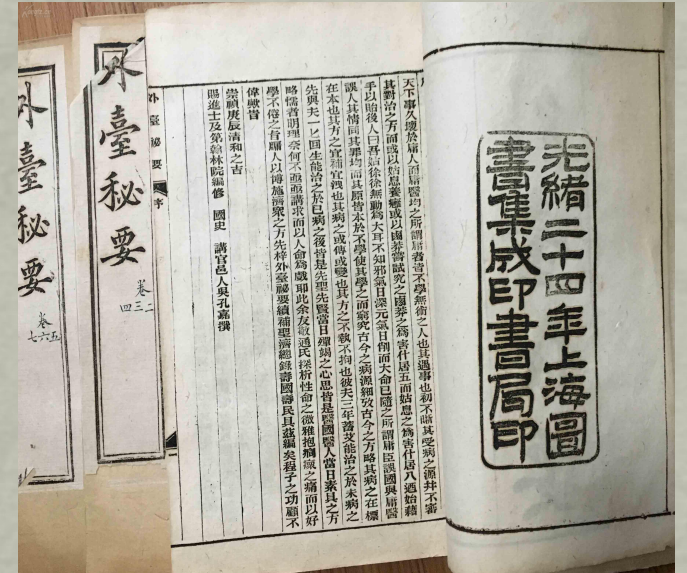 光緒二十四年上海圖
書集成印書局印
天下事久壞於庸人而庸醫均之所謂庸者皆不學無術之人也其遇事也初不晰其受病之源并不審
其對治之方而或以姑息養癰或以鹵莽嘗試究之鹵莽之為害什居五而姑息之為害什居八迺始藉
手以貽後人曰吾姑徐徐無動為大耳不知邪氣日深元氣日削而大命已隨之所謂庸臣誤國與庸醫
誤人其情同其罪均而其原皆本於不學使其學之而窮究古今之病源細攷古今之方略其病之在標
在本也其方之宜補宜洩也其病之或傳或變也其方之不執不拘也彼夫三年蓄艾能治之於未病之
先與夫一匕回生能治之於已病之後皆是先聖先賢當日殫竭之心思皆是醫國醫人當日素具之方
略儒者明理奈何不亟亟講求而以人命為戲耶此余友敬通氏探析性命之微雅抱痌瘝之痛而以好
學不倦之旨願人以博施濟衆之方先梓外臺祕要續補聖濟總錄壽國壽民具茲編矣程子之功顧不
偉歟旹
崇禎庚辰清和之吉
賜進士及第翰林院編修 國史 講官邑人吳孔嘉撰
外臺祕要 序
外臺秘要
卷二三四
外臺秘要
卷五六七